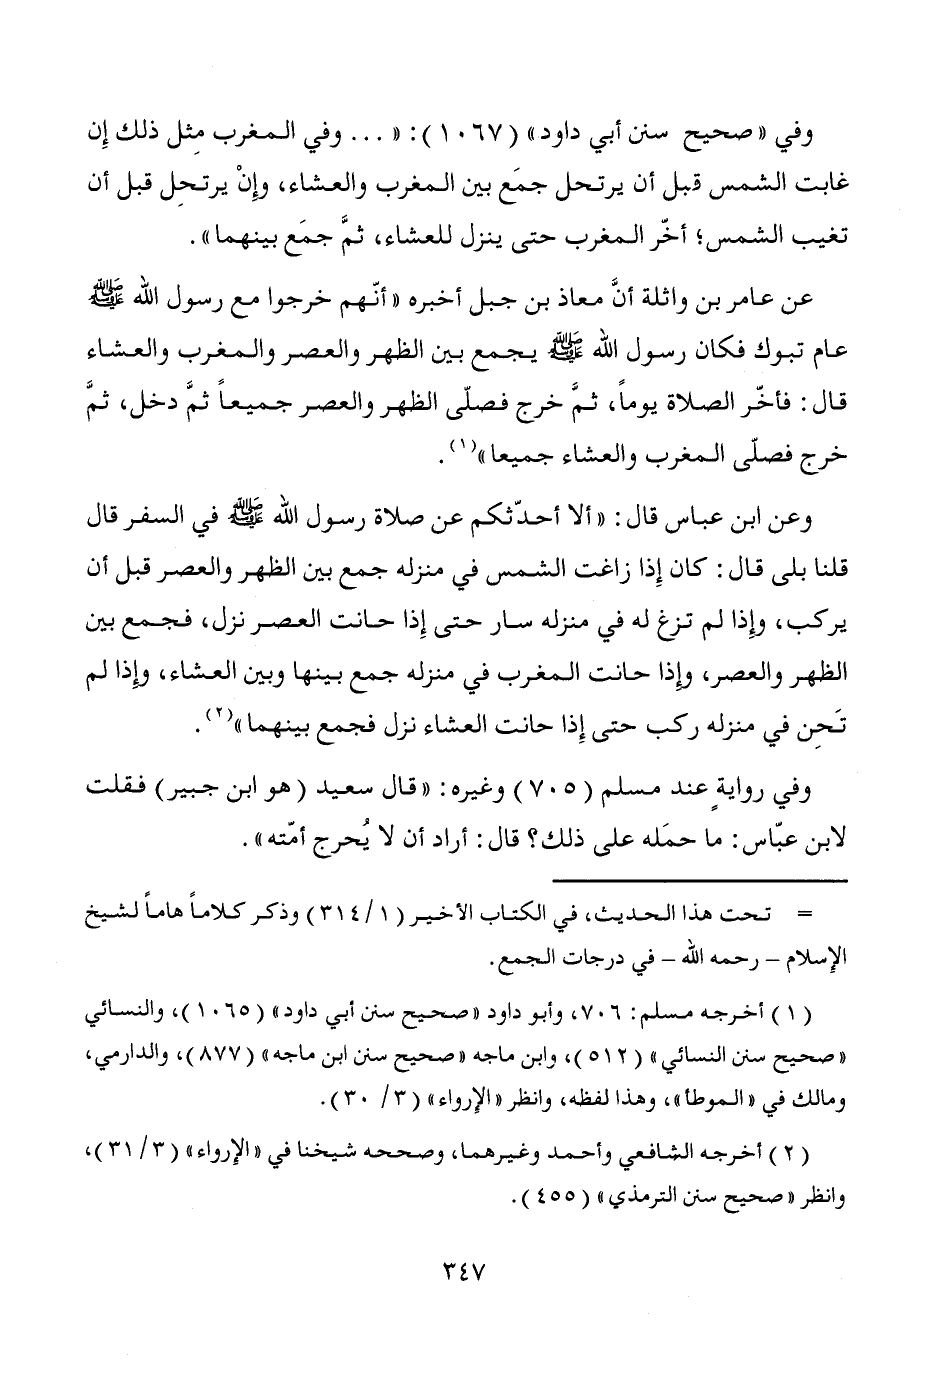 وفي «صحيح سنن أبي داود» (١٠٦٧): «... وفي المغرب مِثل ذلك إِن
غابت الشمس قبل أن يرتحل جمَع بين المغرب والعشاء، وإِنْ يرتحِل قبل أن
تغيب الشمس؛ أخّر المغرب حتى ينزل للعشاء، ثمَّ جمَع بينهما».
عن عامر بن واثلة أنَّ معاذ بن جبل أخبره «أنّهم خرجوا مع رسول الله ﷺ
عام تبوك فكان رسول الله ﷺ يجمع بين الظهر والعصر والمغرب والعشاء
قال: فأخّر الصلاة يوماً، ثمَّ خرج فصلّى الظهر والعصر جميعاً ثمَّ دخل، ثمَّ
خرج فصلّى المغرب والعشاء جميعا»(١).
وعن ابن عباس قال: «ألا أحدّثكم عن صلاة رسول الله ﷺ في السفر قال
قلنا بلى قال: كان إِذا زاغت الشمس في منزله جمع بين الظهر والعصر قبل أن
يركب، وإِذا لم تزغ له في منزله سار حتى إِذا حانت العصر نزل، فجمع بين
الظهر والعصر، وإِذا حانت المغرب في منزله جمع بينها وبين العشاء، وإِذا لم
تَحِن في منزله ركب حتى إِذا حانت العشاء نزل فجمع بينهما»(٢).
وفي روايةٍ عند مسلم (٧٠٥) وغيره: «قال سعيد (هو ابن جبير) فقلت
لابن عبّاس: ما حمَله على ذلك؟ قال: أراد أن لا يُحرج أمّته».
= تحت هذا الحديث، في الكتاب الأخير (١/٣١٤) وذكر كلاماً هاماً لشيخ
الإِسلام - رحمه الله - في درجات الجمع.
(١) أخرجه مسلم: ٧٠٦، وأبو داود «صحيح سنن أبي داود» (١٠٦٥)، والنسائي
«صحيح سنن النسائي» (٥١٢)، وابن ماجه «صحيح سنن ابن ماجه» (٨٧٧)، والدارمي،
ومالك في «الموطأ»، وهذا لفظه، وانظر «الإِرواء» (٣/ ٣٠).
(٢) أخرجه الشافعي وأحمد وغيرهما، وصححه شيخنا في «الإِرواء» (٣/٣١)،
وانظر «صحيح سنن الترمذي» (٤٥٥).
٣٤٧